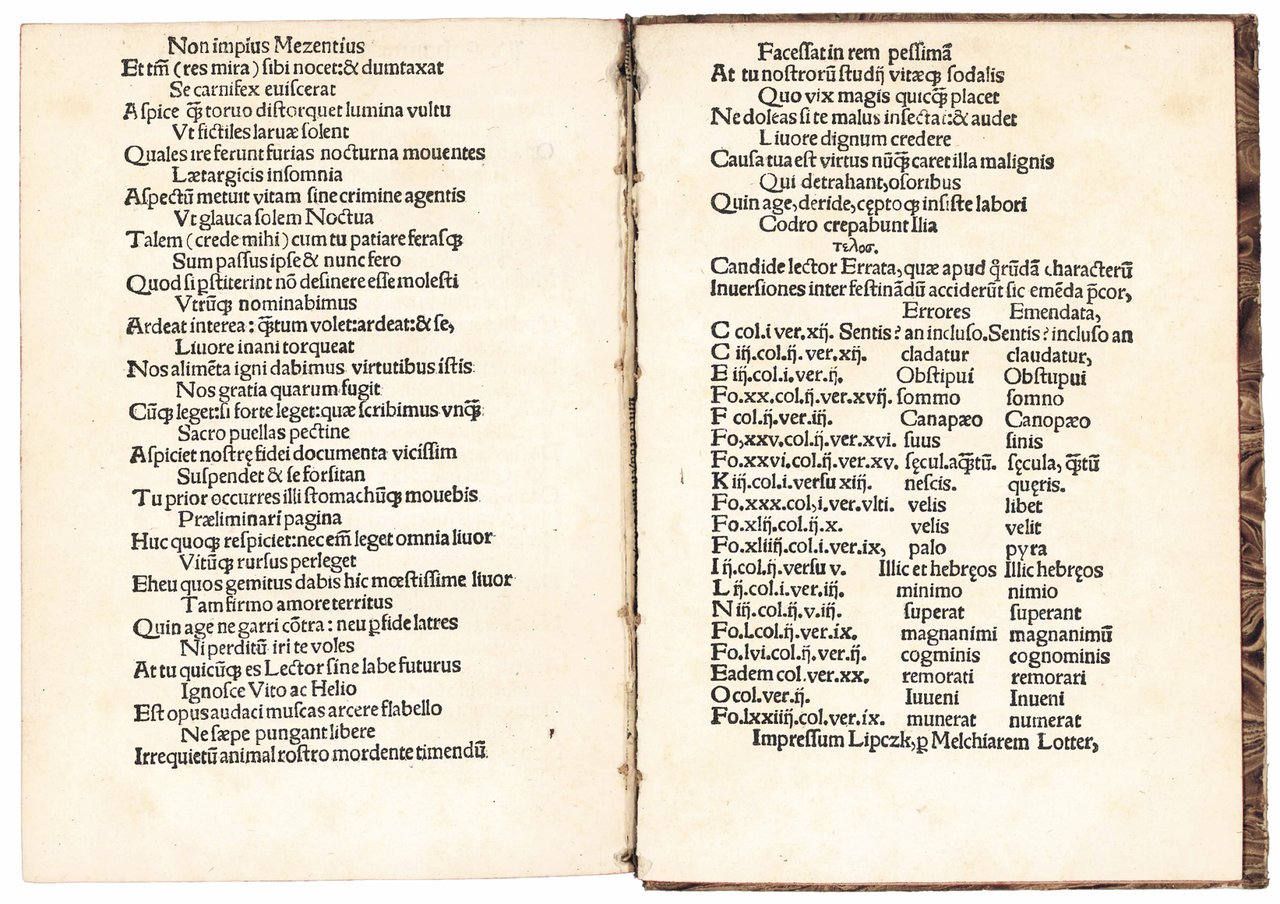 Non impius Mezentius
Et tm̄ (res mira) sibi nocet:& dumtaxat
Se carnifex euiscerat
Aspice qͣ̄ toruo distorquet lumina vultu
Vt fictiles laruæ solent
Quales ire ferunt furias nocturna mouentes
Lætargicis insomnia
Aspectū metuit vitam sine crimine agentis
Vt glauca solem Noctua
Talem (crede mihi) cum tu patiare ferasqꝫ
Sum passus ipse & nunc fero
Quod si ꝑstiterint nō desinere esse molesti
Vtrūqꝫ nominabimus
Ardeat interea: qͣ̄tum volet:ardeat:& se,
Liuore inani torqueat
Nos alimēta igni dabimus virtutibus istis
Nos gratia quarum fugit
Cūqꝫ leget:si forte leget:quæ scribimus vnqͣ̄:
Sacro puellas pectine
Aspiciet nostrę fidei documenta vicissim
Suspendet & se forsitan
Tu prior occurres illi stomachūqꝫ mouebis
Præliminari pagina
Huc quoqꝫ respiciet:nec em̄ leget omnia liuor
Vitūqꝫ rursus perleget
Eheu quos gemitus dabis hic mœstissime liuor
Tam firmo amore territus
Quin age ne garri cōtra: neu ꝑfide latres
Ni perditū iri te voles
At tu quicūqꝫ es Lector sine labe futurus
Ignosce Vito ac Helio
Est opus audaci muscas arcere flabello
Ne sæpe pungant libere
Irrequietū animal rostro mordente timendū.
Facessat in rem pessimā
At tu nostrorū studij vitæqꝫ sodalis
Quo vix magis quicqͣ̄ placet
Ne doleas si te malus insectat:& audet
Liuore dignum credere
Causa tua est virtus nūqͣ̄ caret illa malignis
Qui detrahant,osoribus
Quin age,deride,cęptoqꝫ insiste labori
Codro crepabunt Ilia
τελοσ.
Candide lector Errata,quæ apud qͦrūdā characterū
Inuersiones inter festinādū acciderūt sic emēda p̄cor,
Errores Emendata,
C col.i ver.xij. Sentis? an incluso. Sentis? incluso an
C iij.col.ij. ver.xij. cladatur claudatur,
E iij.col.i.ver.ij. Obstipui Obstupui
Fo.xx.col.ij.ver.xvij. sommo somno
F col.ij.ver.iij. Canapæo Canopæo
Fo,xxv.col.ij.ver.xvi. suus sinis
Fo.xxvi.col.ij.ver.xv. sęcul.aqͣ̄tū. sęcula, qͣ̄tū
K iij.col.i.versu xiij. nescis. quęris.
Fo.xxx.col,i.ver.vlti. velis libet
Fo.xlij.col.ij.x. velis velit
Fo.xliiij.col.i.ver.ix, palo pyra
I ij.col.ij.versu v. Illic et hebręos Illic hebręos
L ij.col.i.ver.iij. minimo nimio
N iij.col.ij.v.iij. superat superant
Fo.l.col.ij.ver.ix. magnanimi magnanimū
Fo.lvi.col.ij.ver.ij. cogminis cognominis
Eadem col.ver.xx. remorati remorari
O col.ver.ij. Iuueni Inueni
Fo.lxxiiij.col.ver.ix. munerat numerat
Impressum Lipczk,ꝑ Melchiarem Lotter,